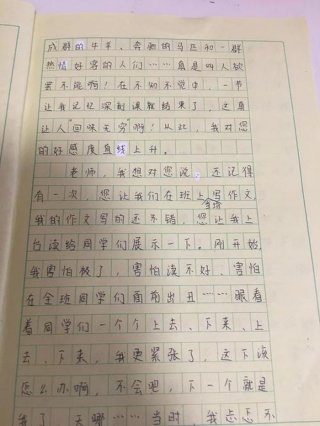 成群的牛羊、奔驰的马匹和一群
热情好客的人们……真是叫人欲
罢不能啊！在不知不觉中，一节
让我记忆深刻课就结束了，这真
让人“回味无穷”啊！从此，我对您
的好感度直线上升。
老师，我想对您说，还记得
有一次，您让我们在班上写作文，
我的作文写的还不错，您让我上
台读给同学们展示一下。刚开始
我害怕极了，害怕读不好、害怕
在全班同学们面前出丑……眼看
着同学们一个个上去、下来、上
去、下来，我更紧张了，这下该
怎么办啊，不会吧，下一个就是
我了，天哪……当时，我忐忑不